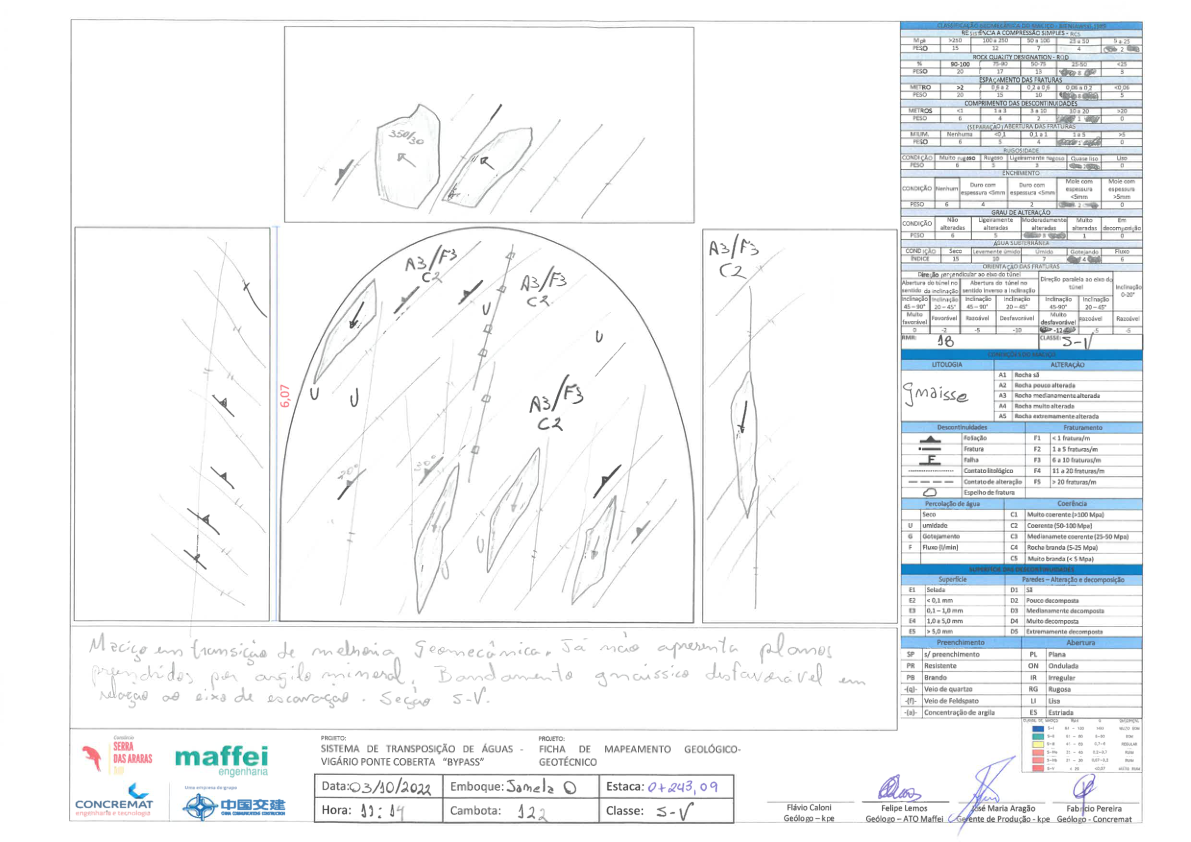 350/30
A3/F3
C2
A3/F3
C2
A3/F3
C2
A3/F3
C2
U
U
U
U
U
6,07
Maciço em transição de melhoria Geomecânica. Já não apresenta planos
preenchidos por argilo mineral. Bandamento gnaissico desfavorável em
relação ao eixo de escavação. Seção S-V.
RESISTÊNCIA A COMPRESSÃO SIMPLES - RCS
Mpa >250 100 a 250 50 a 100 25 a 50 5 a 25
PESO 15 12 7 4 2
ROCK QUALITY DESIGNATION - RQD
% 90-100 75-90 50-75 25-50 <25
PESO 20 17 13 8 5
ESPAÇAMENTO DAS FRATURAS
METRO >2 0,6 a 2 0,2 a 0,6 0,06 a 0,2 <0,06
PESO 20 15 10 8 5
COMPRIMENTO DAS DESCONTINUIDADES
METROS <1 1 a 3 3 a 10 10 a 20 >20
PESO 6 4 2 1 0
(SEPARAÇÃO) ABERTURA DAS FRATURAS
MILIM. Nenhuma <0,1 0,1 a 1 1 a 5 >5
PESO 6 5 4 1 0
RUGOSIDADE
CONDIÇÃO Muito rugoso Rugoso Ligeiramente rugoso Quase liso Liso
PESO 6 5 3 1 0
ENCHIMENTO
CONDIÇÃO Nenhum Duro com espessura <5mm Duro com espessura <5mm Mole com espessura <5mm Mole com espessura >5mm
PESO 6 4 2 2 0
GRAU DE ALTERAÇÃO
CONDIÇÃO Não alteradas Ligeiramente alteradas Moderadamente alteradas Muito alteradas Em decomposição
PESO 6 5 3 1 0
ÁGUA SUBTERRÂNEA
CONDIÇÃO Seco Levemente úmido Úmido Gotejando Fluxo
ÍNDICE 15 10 7 4 0
ORIENTAÇÃO DAS FRATURAS
Direção perpendicular ao eixo do túnel
Direção paralela ao eixo do túnel
Inclinação 0-20°
Abertura do túnel no sentido da inclinação
Abertura do túnel no sentido inverso a inclinação
Inclinação 45 – 90° Inclinação 20 – 45° Inclinação 45 – 90° Inclinação 20 – 45° Inclinação 45-90° Inclinação 20 – 45°
Muito favorável Favorável Razoável Desfavorável Muito desfavorável Razoável Razoável
0 -2 -5 -10 -12 -5 -5
RMR: 18 CLASSE: S-V
LITOLOGIA ALTERAÇÃO
gnaisse
A1 Rocha sã
A2 Rocha pouco alterada
A3 Rocha medianamente alterada
A4 Rocha muito alterada
A5 Rocha extremamente alterada
Descontinuidades Fraturamento
Foliação F1 < 1 fratura/m
Fratura F2 1 a 5 fraturas/m
F Falha F3 6 a 10 fraturas/m
Contato litológico F4 11 a 20 fraturas/m
Contato de alteração F5 > 20 fraturas/m
Espelho de fratura
Percolação de água Coerência
Seco C1 Muito coerente (>100 Mpa)
U umidado C2 Coerente (50-100 Mpa)
G Gotejamento C3 Medianamete coerente (25-50 Mpa)
F Fluxo (l/min) C4 Rocha branda (5-25 Mpa)
C5 Muito branda (< 5 Mpa)
Superfície Paredes – Alteração e decomposição
E1 Selada D1 Sã
E2 < 0,1 mm D2 Pouco decomposta
E3 0,1 – 1,0 mm D3 Medianamente decomposta
E4 1,0 a 5,0 mm D4 Muito decomposta
E5 > 5,0 mm D5 Extremamente decomposta
Preenchimento Abertura
SP s/ preenchimento PL Plana
PR Resistente ON Ondulada
PB Brando IR Irregular
-(q)- Veio de quartzo RG Rugosa
-(f)- Veio de Feldspato LI Lisa
-(a)- Concentração de argila ES Estriada
SERRA
DAS ARARAS
maffei
engenharia
CONCREMAT
engenharia e tecnologia
Uma empresa do grupo
中国交建
PROJETO:
SISTEMA DE TRANSPOSIÇÃO DE ÁGUAS -
VIGARIO PONTE COBERTA "BYPASS"
PROJETO:
FICHA DE MAPEAMENTO GEOLÓGICO-
GEOTÉCNICO
Data: 03/10/2022 Emboque: Janela O Estaca: 0+243,09
Hora: 11:19 Cambota: 122 Classe: S-V
Flávio Caloni
Geólogo – kpe
Felipe Lemos
Geólogo – ATO Maffei
José Maria Aragão
Gerente de Produção - kpe
Fabrício Pereira
Geólogo - Concremat